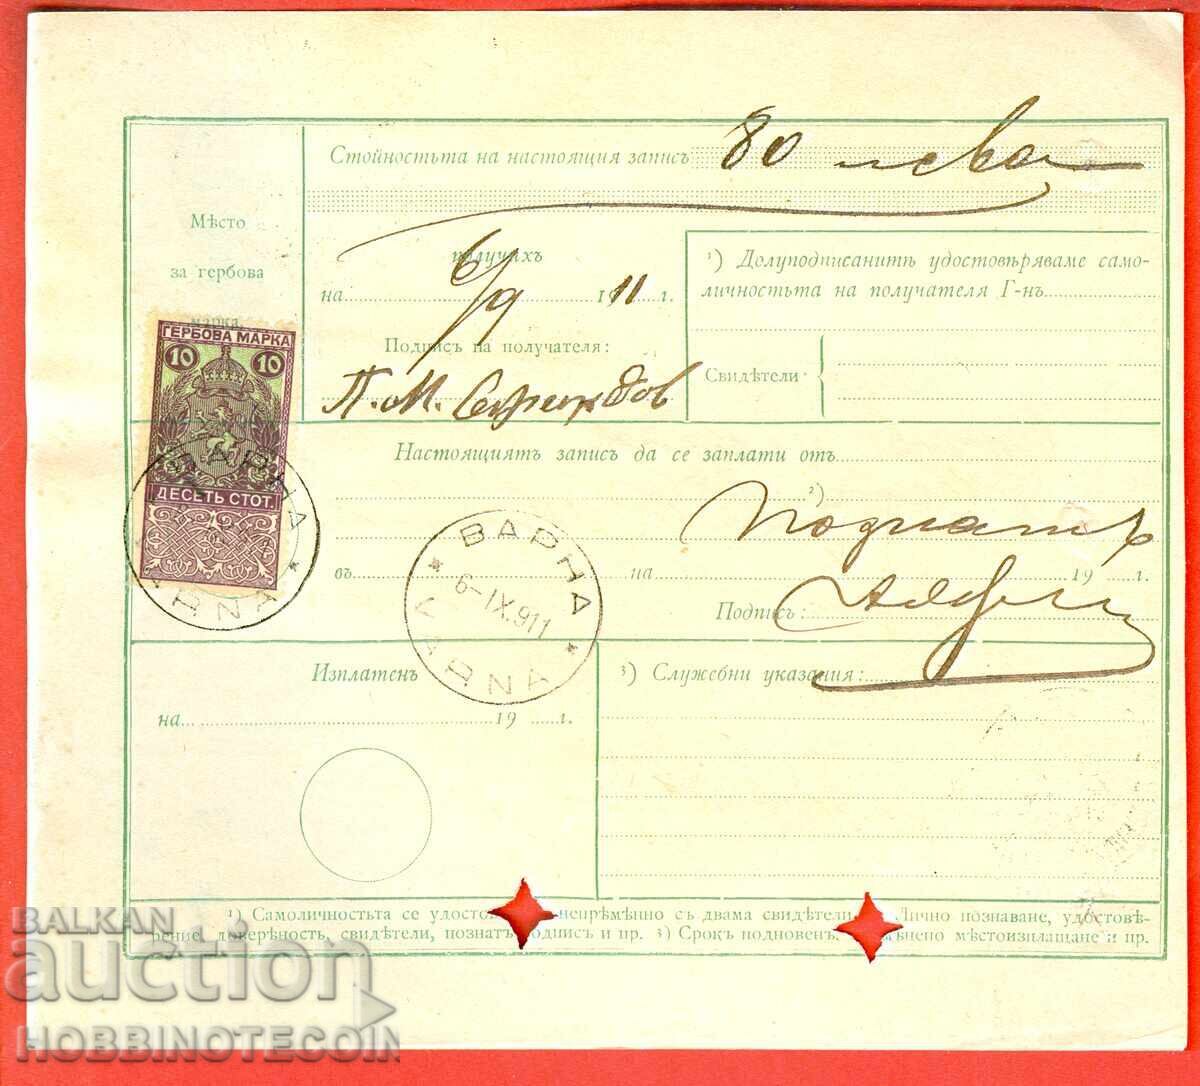 Стойностьта на настоящия записъ 80 лева
Мѣсто
за гербова
марка.
получихъ
на 6/9 1911 г.
Подписъ на получателя:
П. М.
¹) Долуподписанитѣ удостовѣряваме само-
личностьта на получателя Г-нъ
Свидѣтели:
ГЕРБОВА МАРКА
10 10
ДЕСЕТЬ СТОТ.
ВАРНА
VARNA
Настоящиятъ записъ да се заплати отъ
²)
Познатъ
въ на 19 г.
Подписъ:
ВАРНА
6-IX.911
VARNA
Изплатенъ
на 19 г.
³) Служебни указания:
¹) Самоличностьта се удостов непрѣмѣнно съ двама свидѣтели. Лично познаване, удостовѣ-
рение, довѣрность, свидѣтели, познатъ подписъ и пр. ³) Срокъ подновенъ, мѣстоизплащане и пр.
BALKAN
auction
HOBBINOTECOIN